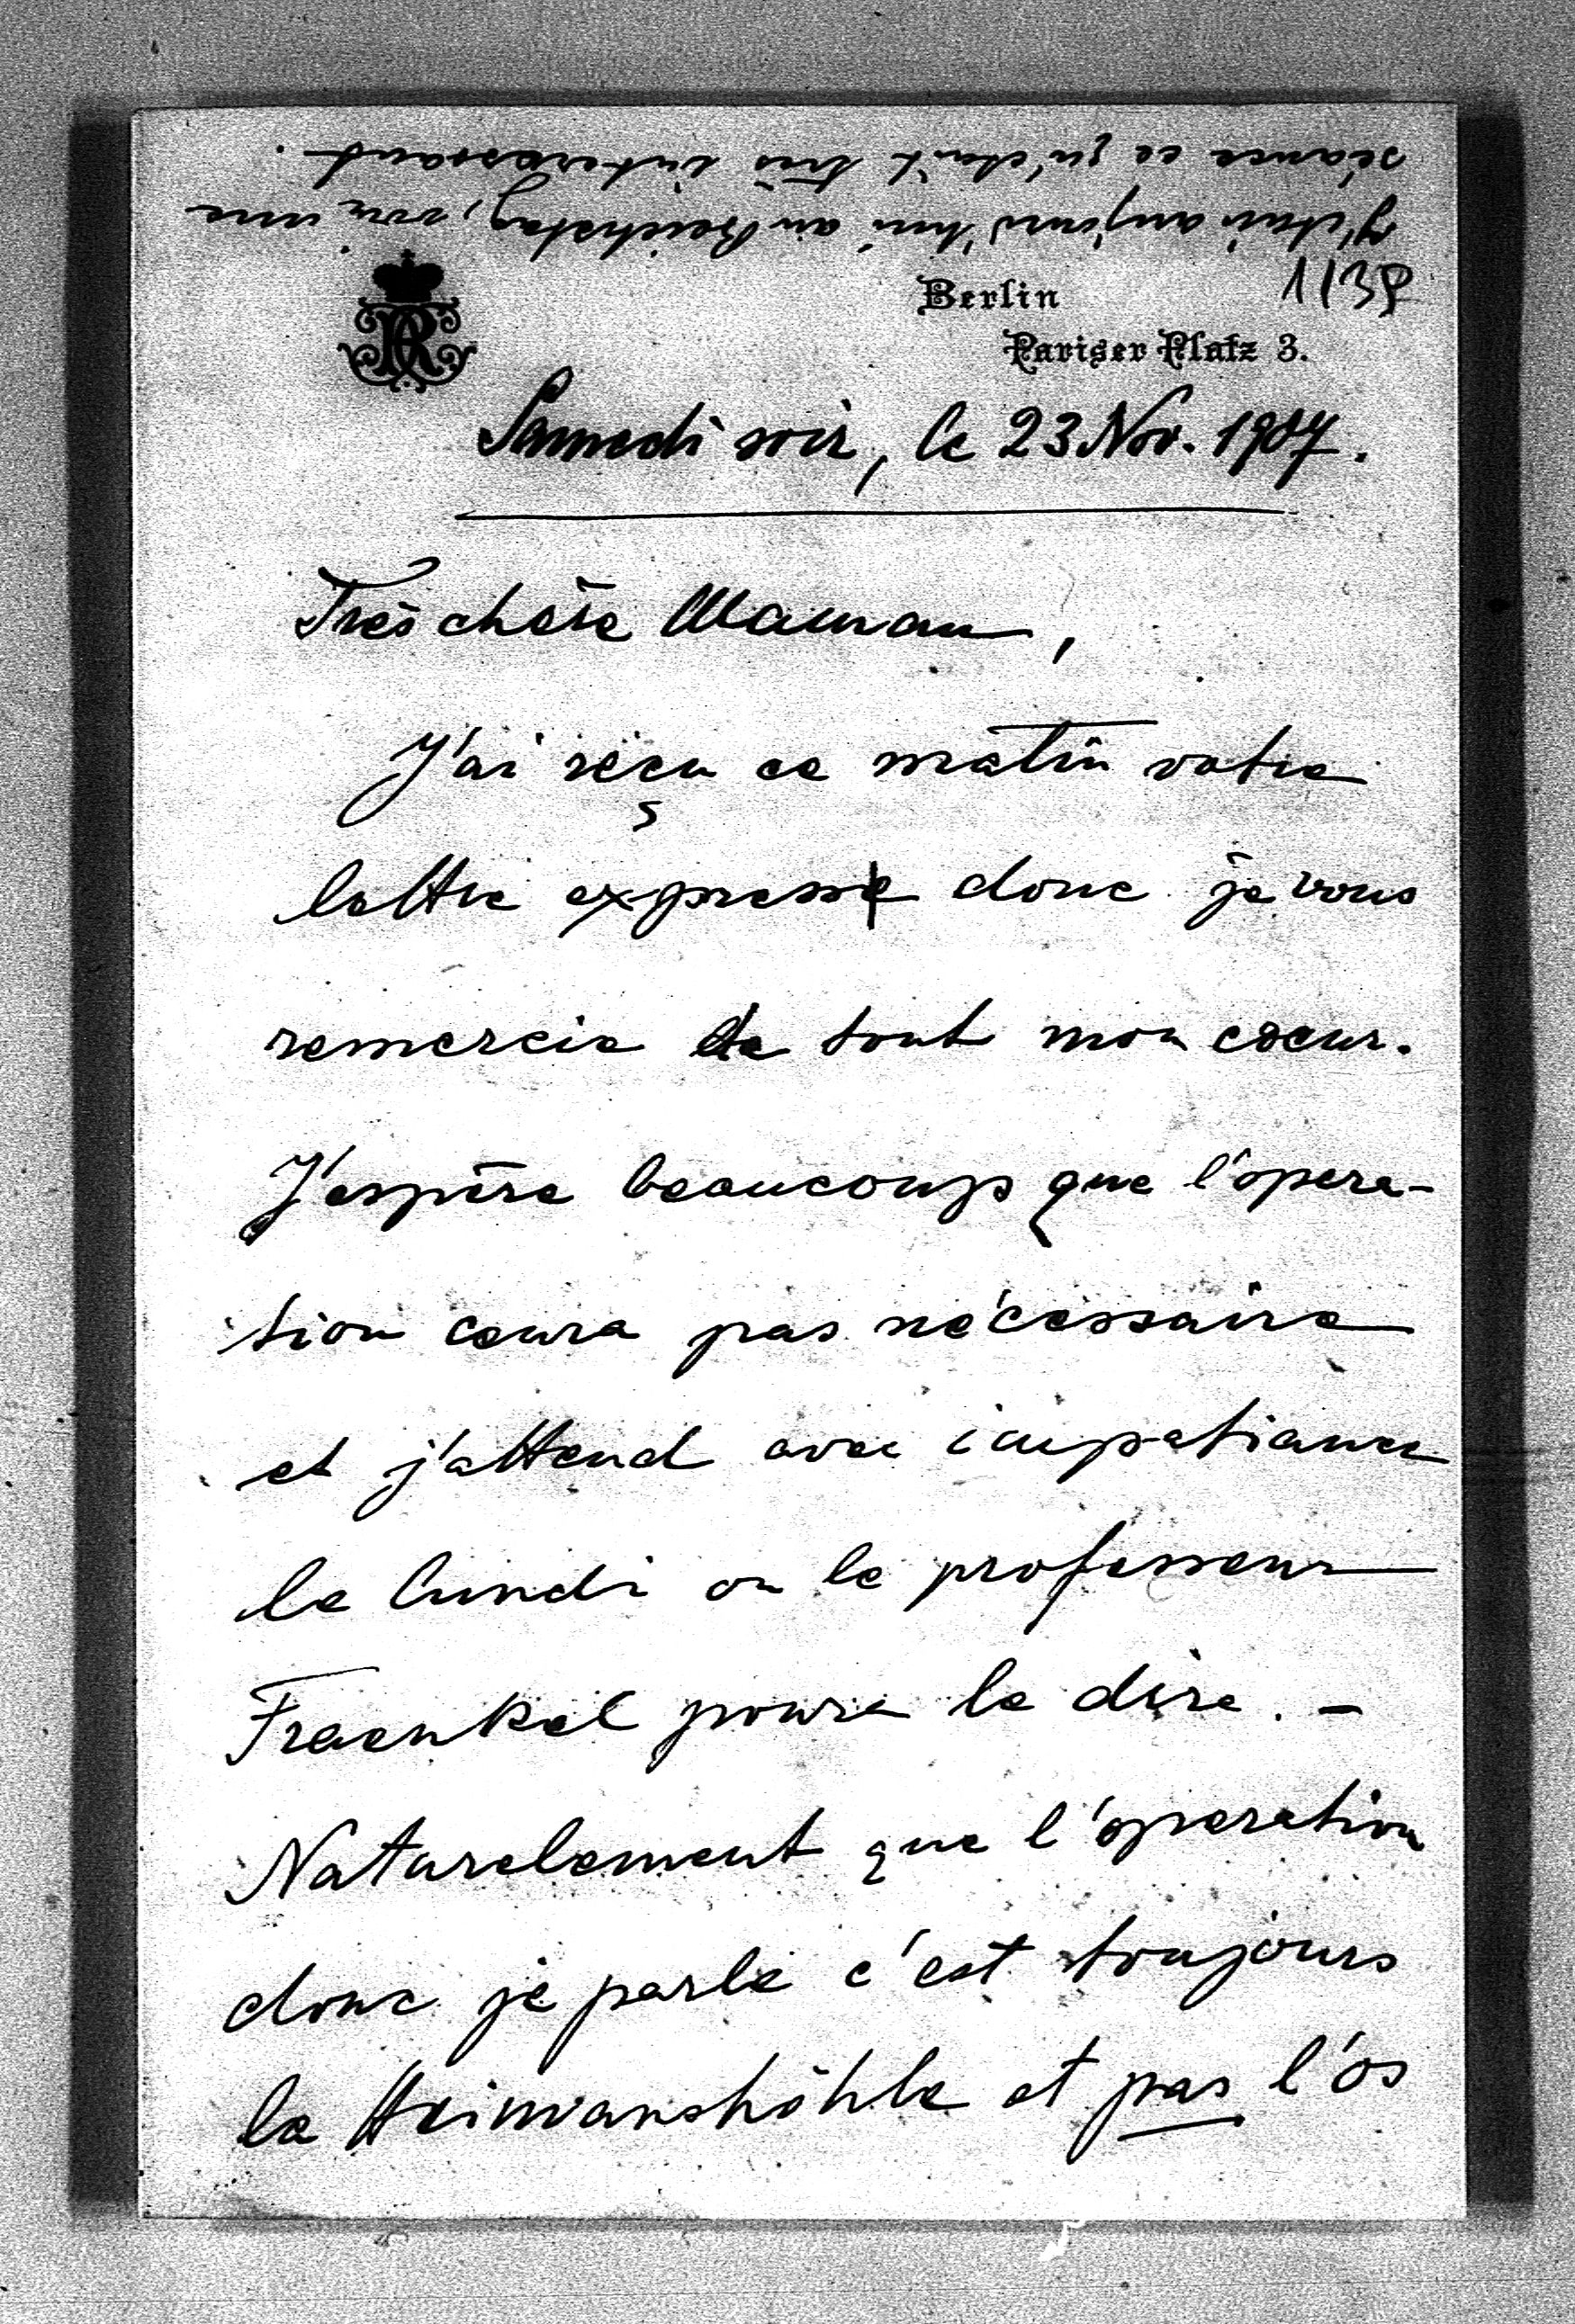 J'étais aujourd'hui au Reichstag, voir une
séance ce qu'était très interessant.
1138
Berlin
Pariser Platz 3.
Samedi soir, le 23 Nov. 1907.
Très chère Maman,
J'ai réçu ce matin votre
lettre express donc je vous
remercie de tout mon coeur.
J'espère beaucoup que l'opera-
tion cera pas nécessaire
et j'attend avec impatiance
le lundi ou le professeur
Fraenkel poura le dire. -
Naturelement que l'operation
donc je parle c'est toujours
la Stirnhöhle et pas l'os